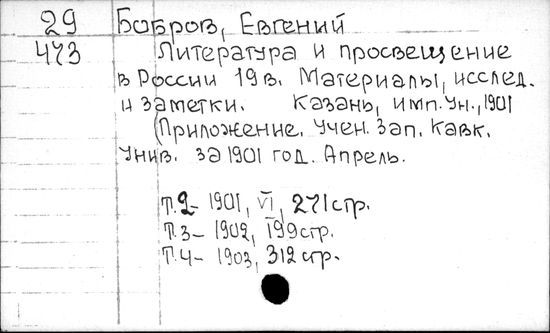 29 Бобров, Евгений
473 Литература и просвещение
в России 19 в. Материалы, исслед.
и заметки. Казань, имп. Ун., 1901
(Приложение. Учен. Зап. Кавк.
Унив. за 1901 год. Апрель.
Т.2- 1901, VI, 271 стр.
Т.3- 1902, 199 стр.
Т.4- 1903, 312 стр.